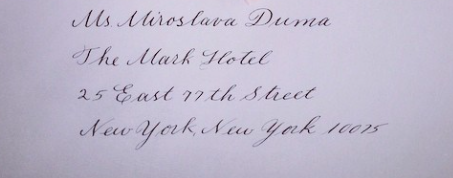 Ms Miroslava Duma
The Mark Hotel
25 East 77th Street
New York, New York 10075